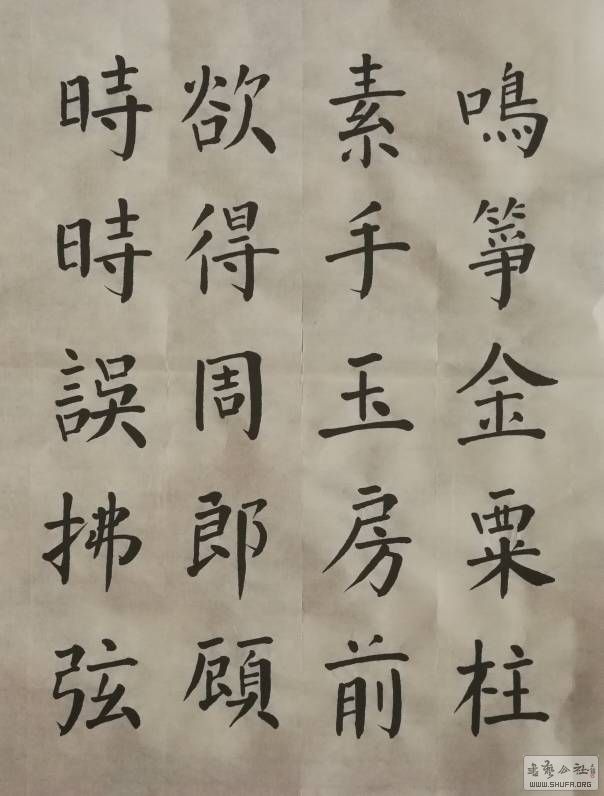 鳴箏金粟柱
素手玉房前
欲得周郎顧
時時誤拂弦
书艺公社
WWW.SHUFA.ORG